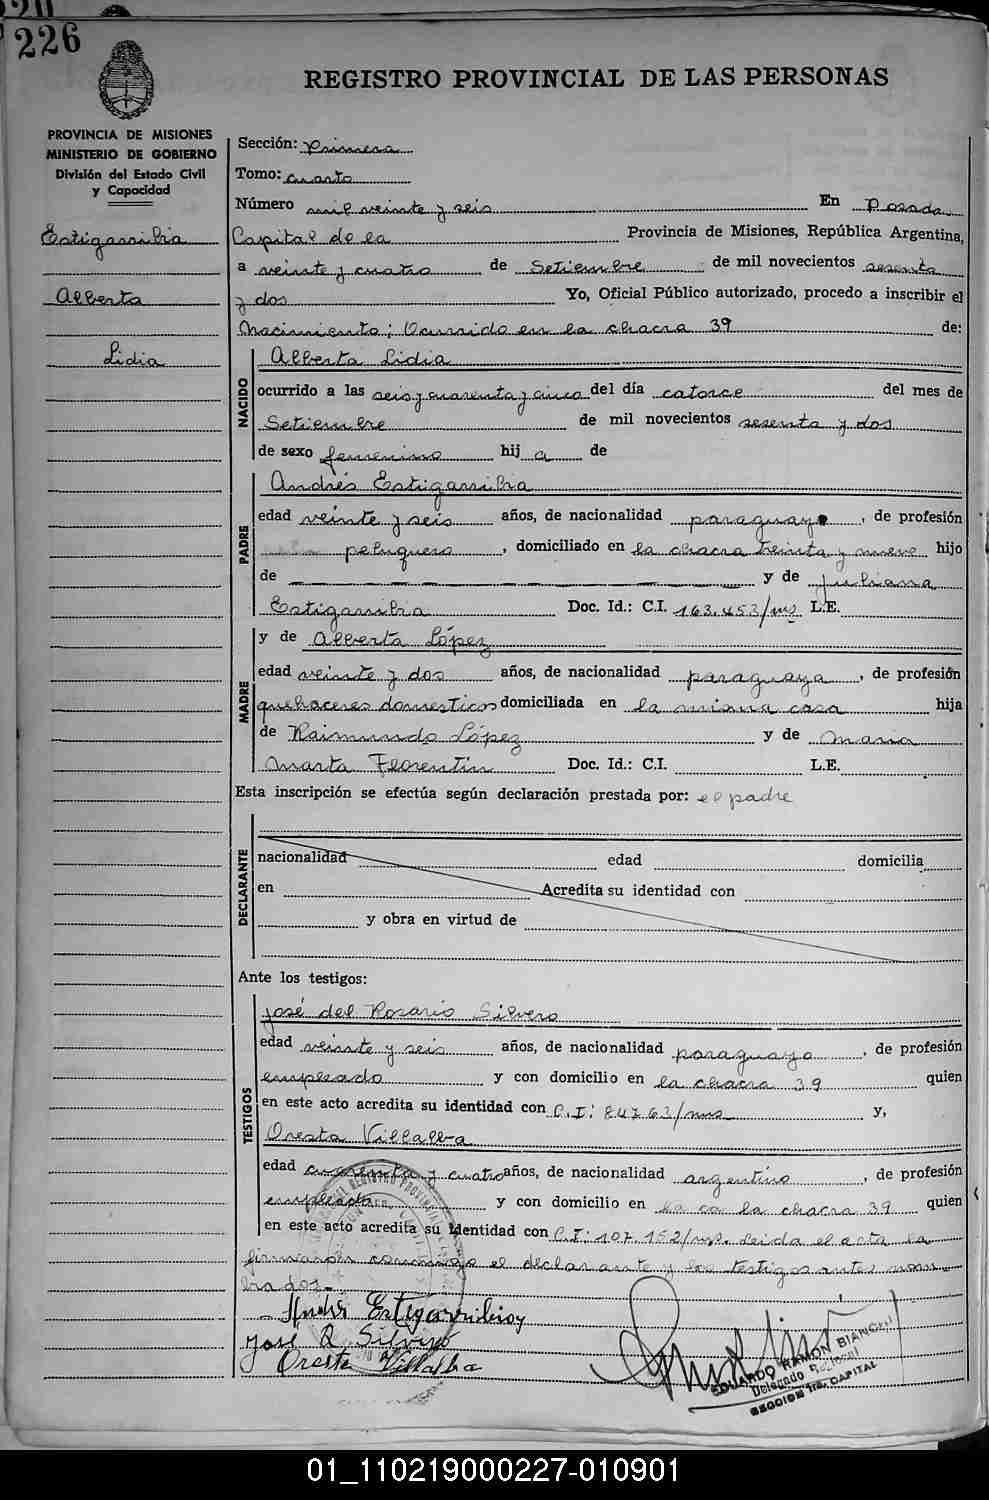 226
REGISTRO PROVINCIAL DE LAS PERSONAS
PROVINCIA DE MISIONES
MINISTERIO DE GOBIERNO
División del Estado Civil
y Capacidad
Estigarribia
Alberta
Lidia
Sección: Primera
Tomo: cuarto
Número mil veinte y seis En Posada
Capital de la Provincia de Misiones, República Argentina,
a veinte y cuatro de Setiembre de mil novecientos sesenta
y dos Yo, Oficial Público autorizado, procedo a inscribir el
Nacimiento; Ocurrido en la chacra 39 de:
NACIDO
Alberta Lidia
ocurrido a las seis y cuarenta y cinco del día catorce del mes de
Setiembre de mil novecientos sesenta y dos
de sexo femenino hij a de
PADRE
Andrés Estigarribia
edad veinte y seis años, de nacionalidad paraguayo, de profesión
peluquero, domiciliado en la chacra treinta y nueve hijo
de y de Juliana
Estigarribia Doc. Id.: C.I. 163.453/ms L.E.
MADRE
y de Alberta López
edad veinte y dos años, de nacionalidad paraguaya, de profesión
quehaceres domesticos domiciliada en la misma casa hija
de Raimundo López y de Maria
Marta Florentin Doc. Id.: C.I. L.E.
Esta inscripción se efectúa según declaración prestada por: el padre
DECLARANTE
nacionalidad edad domicilia
en Acredita su identidad con
y obra en virtud de
Ante los testigos:
TESTIGOS
José del Rosario Silvero
edad veinte y seis años, de nacionalidad paraguaya, de profesión
empleado y con domicilio en la chacra 39 quien
en este acto acredita su identidad con C.I: 84763/ms y,
Oresta Villalba
edad cuarenta y cuatro años, de nacionalidad argentino, de profesión
empleada y con domicilio en la chacra 39 quien
en este acto acredita su identidad con C.I: 107.152/ms. Leida el acta la
firmaron conmigo el declarante y los testigos antes nom
brados.-
Andrés Estigarribia
José R Silvero
Oreste Villalba
EDUARDO RAMON BIANCHI
Delegado Seccional
SECCION 1ra. CAPITAL
01_110219000227-010901